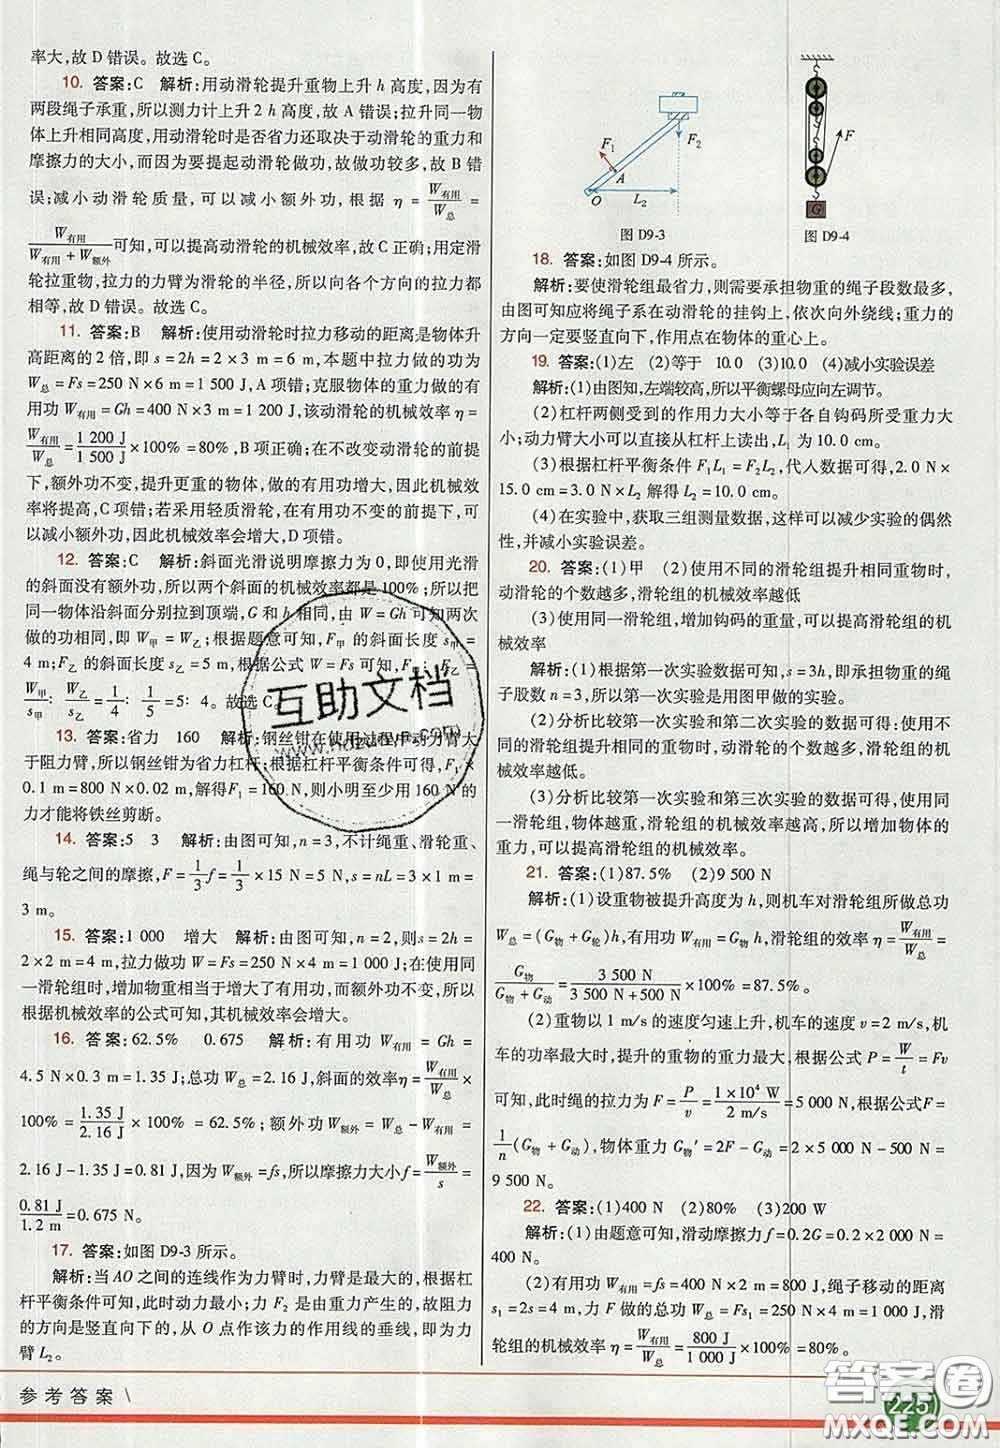 率大，故 D 错误。故选 C。
10. 答案：C　解析：用动滑轮提升重物上升 h 高度，因为有
两段绳子承重，所以测力计上升 2 h 高度，故 A 错误；拉升同一物
体上升相同高度，用动滑轮时是否省力还取决于动滑轮的重力和
摩擦力的大小，而因为要提起动滑轮做功，故做功较多，故 B 错
误；减小动滑轮质量，可以减小额外功，根据 η = W有用/W总 =
W有用/(W有用 + W额外) 可知，可以提高动滑轮的机械效率，故 C 正确；用定滑
轮拉重物，拉力的力臂为滑轮的半径，所以各个方向的拉力都
相等，故 D 错误。故选 C。
11. 答案：B　解析：使用动滑轮时拉力移动的距离是物体升
高距离的 2 倍，即 s = 2h = 2 × 3 m = 6 m，本题中拉力做的功为
W总 = Fs = 250 N × 6 m = 1 500 J，A 项错；克服物体的重力做的有
用功 W有用 = Gh = 400 N × 3 m = 1 200 J，该动滑轮的机械效率 η =
W有用/W总 = 1 200 J/1 500 J × 100% = 80%，B 项正确；在不改变动滑轮的前提
下，额外功不变，提升更重的物体，做的有用功增大，因此机械效
率将提高，C 项错；若采用轻质滑轮，在有用功不变的前提下，可
以减小额外功，因此机械效率会增大，D 项错。
12. 答案：C　解析：斜面光滑说明摩擦力为 0，即使用光滑
的斜面没有额外功，所以两个斜面的机械效率都是 100%；所以把
同一物体沿斜面分别拉到顶端，G 和 h 相同，由 W = Gh 可知两次
做的功相同，即 W甲 = W乙；根据题意可知，F甲 的斜面长度 s甲 =
4 m；F乙 斜面长度 s乙 = 5 m，根据公式 W = Fs 可知，F甲：F乙 =
W甲/s甲：W乙/s乙 = 1/4：1/5 = 5：4。故选 C。
13. 答案：省力　160　解析：钢丝钳在使用过程中动力臂大
于阻力臂，所以钢丝钳为省力杠杆；根据杠杆平衡条件可得，F₁ ×
0.1 m = 800 N × 0.02 m，解得F₁ = 160 N，则小明至少用 160 N 的
力才能将铁丝剪断。
14. 答案：5　3　解析：由图可知，n = 3，不计绳重、滑轮重、
绳与轮之间的摩擦，F = 1/3 f = 1/3 × 15 N = 5 N，s = nL = 3 × 1 m =
3 m。
15. 答案：1 000　增大　解析：由图可知，n = 2，则s = 2h =
2 × 2 m = 4 m，拉力做功 W = Fs = 250 N × 4 m = 1 000 J；在使用同
一滑轮组时，增加物重相当于增大了有用功，而额外功不变，所以
根据机械效率的公式可知，其机械效率会增大。
16. 答案：62.5%　0.675　解析：有用功 W有用 = Gh =
4.5 N × 0.3 m = 1.35 J；总功 W总 = 2.16 J，斜面的效率η = W有用/W总 ×
100% = 1.35 J/2.16 J × 100% = 62.5%；额外功 W额外 = W总 − W有用 =
2.16 J − 1.35 J = 0.81 J，因为 W额外 = fs，所以摩擦力大小f = W额外/s =
0.81 J/1.2 m = 0.675 N。
17. 答案：如图 D9-3 所示。
解析：当 AO 之间的连线作为力臂时，力臂是最大的，根据杠
杆平衡条件可知，此时动力最小；力 F₂ 是由重力产生的，故阻力
的方向是竖直向下的，从 O 点作该力的作用线的垂线，即为力
臂 L₂。
F₁
F₂
A
O
L₂
图 D9-3
F
G
图 D9-4
18. 答案：如图 D9-4 所示。
解析：要使滑轮组最省力，则需要承担物重的绳子段数最多，
由图可知应将绳子系在动滑轮的挂钩上，依次向外绕线；重力的
方向一定要竖直向下，作用点在物体的重心上。
19. 答案：(1)左　(2)等于　10.0　(3)10.0　(4)减小实验误差
解析：(1)由图知，左端较高，所以平衡螺母应向左调节。
(2)杠杆两侧受到的作用力大小等于各自钩码所受重力大
小；动力臂大小可以直接从杠杆上读出，L₁ 为 10.0 cm。
(3)根据杠杆平衡条件 F₁L₁ = F₂L₂，代入数据可得，2.0 N
× 15.0 cm = 3.0 N × L₂ 解得 L₂ = 10.0 cm。
(4)在实验中，获取三组测量数据，这样可以减少实验的偶然
性，并减小实验误差。
20. 答案：(1)甲　(2)使用不同的滑轮组提升相同重物时，
动滑轮的个数越多，滑轮组的机械效率越低
(3)使用同一滑轮组，增加钩码的重量，可以提高滑轮组的机
械效率
解析：(1)根据第一次实验数据可知，s = 3h，即承担物重的绳
子股数 n = 3，所以第一次实验是用图甲做的实验。
(2)分析比较第一次实验和第二次实验的数据可得：使用不
同的滑轮组提升相同的重物时，动滑轮的个数越多，滑轮组的机
械效率越低。
(3)分析比较第一次实验和第三次实验的数据可得：使用同
一滑轮组，物体越重，滑轮组的机械效率越高，所以增加物体的
重力，可以提高滑轮组的机械效率。
21. 答案：(1)87.5%　(2)9 500 N
解析：(1)设重物被提升高度为 h，则机车对滑轮组所做总功
W总 = (G物 + G轮)h，有用功 W有用 = G物 h，滑轮组的效率 η = W有用/W总 =
G物/(G物 + G动) = 3 500 N/(3 500 N + 500 N) × 100% = 87.5%。
(2)重物以 1 m/s 的速度匀速上升，机车的速度 v = 2 m/s，机
车的功率最大时，提升的重物的重力最大，根据公式 P = W/t = Fv
可知，此时绳的拉力为 F = P/v = 1 × 10⁴ W/2 m/s = 5 000 N，根据公式F =
1/n (G物 + G动)，物体重力 G物′ = 2F − G动 = 2 × 5 000 N − 500 N =
9 500 N。
22. 答案：(1)400 N　(2)80%　(3)200 W
解析：(1)由题意可知，滑动摩擦力 f = 0.2G = 0.2 × 2 000 N =
400 N。
(2)有用功 W有用 = fs = 400 N × 2 m = 800 J，绳子移动的距离
s₁ = 2s = 4 m，力 F 做的总功 W总 = Fs₁ = 250 N × 4 m = 1 000 J，滑
轮组的机械效率 η = W有用/W总 = 800 J/1 000 J × 100% = 80%。
互助文档
参考答案
225
答案圈
MXQE.COM